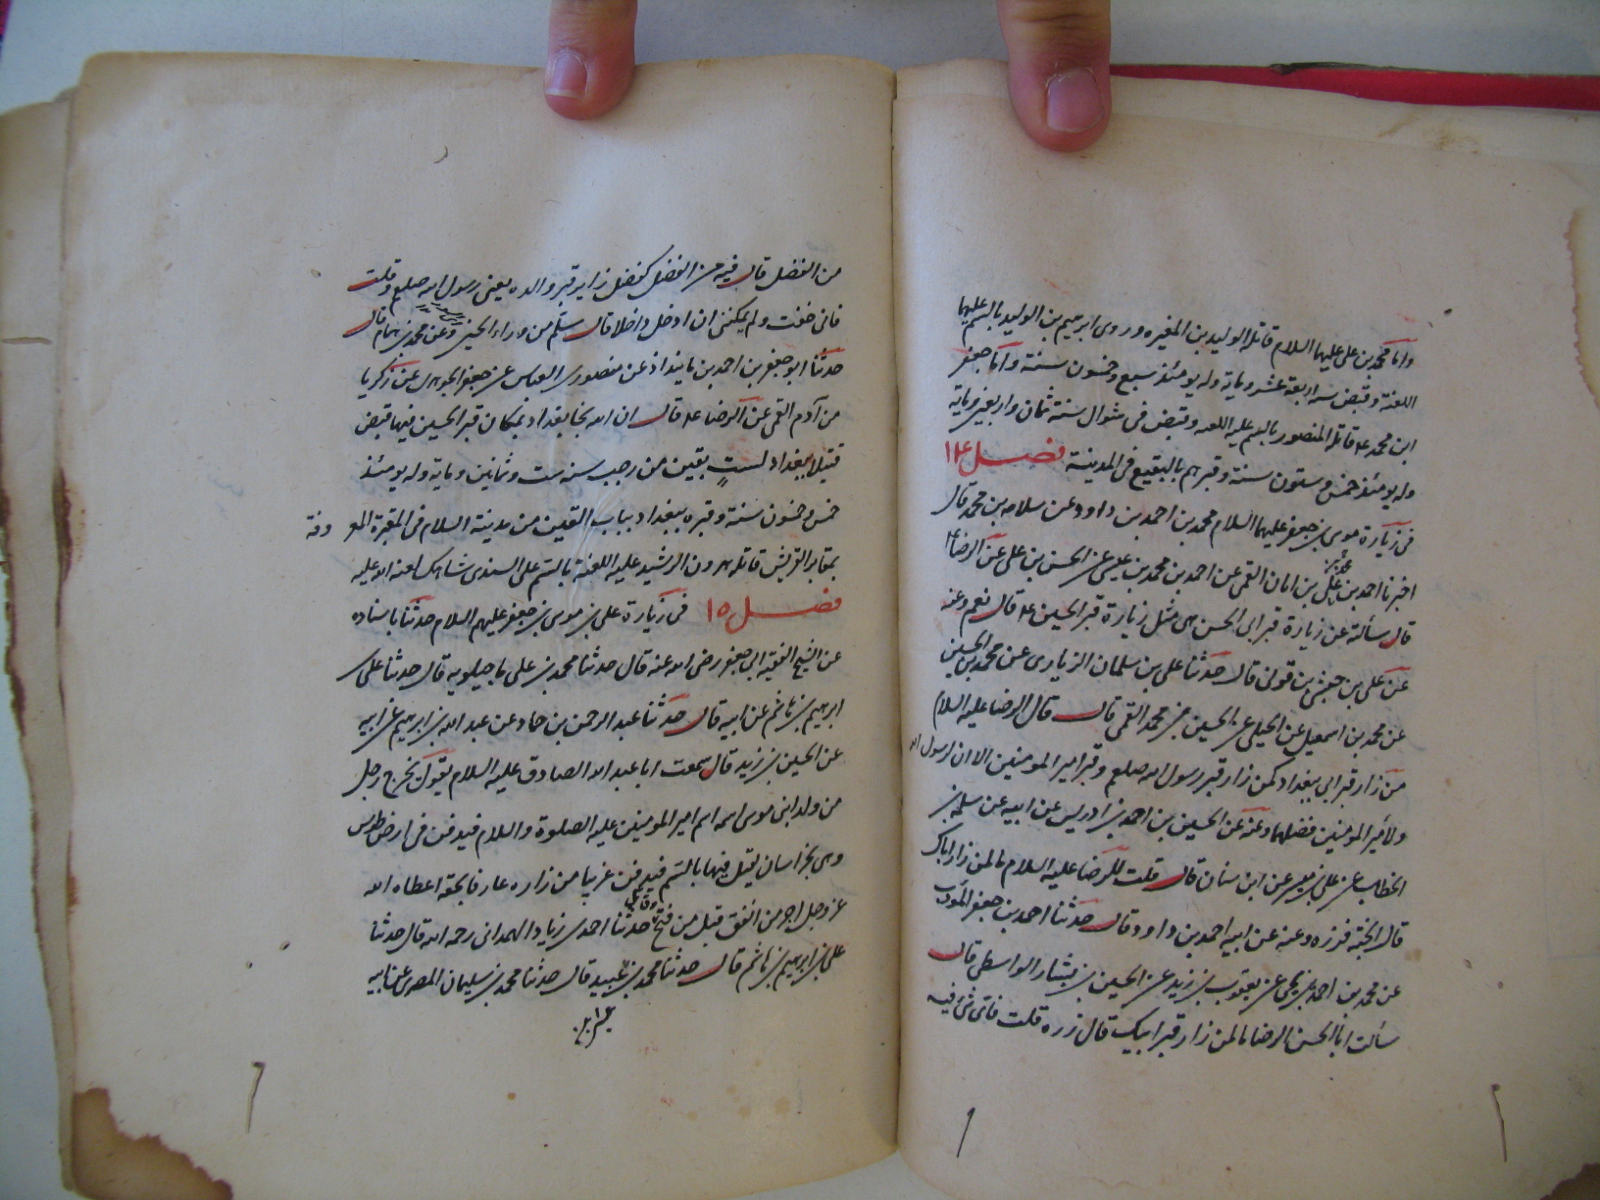 واما محمد بن علی علیهما السلام قاتله الولید بن المغیره وروی ابرهیم بن الولید بالسم علیهما
اللعنة وقبض سنه اربعة عشر ومایة وله یومئذ سبع وخمسون سنة واما جعفر
ابن محمد ع قاتله المنصور بالسم علیه اللعنه وقبض فی شوال سنة ثمان واربعین ومایة
وله یومئذ خمس وستون سنة وقبرهم بالبقیع فی المدینة فصل ۱۴
فی زیارة موسی بن جعفر علیهما السلام محمد بن احمد بن داود عن سلامه بن محمد قال
اخبرنا احمد بن علی بن ابان القمی عن احمد بن محمد بن عیسی عن الحسن بن علی عن الرضا ع
قال سألته عن زیارة قبر ابی الحسن هی مثل زیارة قبر الحسین ع قال نعم وعنه
عن علی بن حبشی بن قونی قال حدثنا علی بن سلمان الزراری عن محمد بن الحسین
عن محمد بن اسمعیل عن الخیبری عن الحسین بن محمد القمی قال قال الرضا علیه السلام
من زار قبر ابی ببغداد کمن زار قبر رسول الله صلعم وقبر امیر المومنین الا ان لرسول الله
ولامیر المومنین فضلهما وعنه عن الحسین بن احمد بن ادریس عن ابیه عن سلمة بن
الخطاب عن علی بن میسر عن ابن سنان قال قلت للرضا علیه السلام ما لمن زار اباک
قال الجنة فزره وعنه عن ابیه احمد بن داود قال حدثنا احمد بن جعفر المؤدب
عن محمد بن احمد بن یحیی عن یعقوب بن یزید عن الحسین بن بشار الواسطی قال
سألت ابا الحسن الرضا ما لمن زار قبر ابیک قال زره قلت فای شئ فیه
من الفضل قال فیه من الفضل کفضل زایر قبر والده یعنی رسول الله صلعم وقلت
فانی خفت ولم یمکننی ان ادخل داخلا قال سلم من وراء الجسر وعن محمد بن همام قال
حدثنا ابو جعفر بن احمد بن مابنداذ عن منصور بن العباس عن جعفر الجوهری عن زکریا
بن آدم القمی عن الرضا ع قال ان الله نجا بغداد بمکان قبر الحسین فیها قبض
قتیلا ببغداد لست بقین من رجب سنه ست وثمانین ومایة وله یومئذ
خمس وخمسون سنة وقبره ببغداد بباب التین من مدینة السلام فی المقبرة المعروفة
بمقابر القریش قاتله هرون الرشید علیه اللعنة بالسم علی السندی شاهک لعنه الله علیه
فصل ۱۵ فی زیارة علی بن موسی بن جعفر علیهم السلام حدثنا باسناده
عن الشیخ الفقیه ابی جعفر رضی الله عنه قال حدثنا محمد بن علی ماجیلویه قال حدثنا علی بن
ابرهیم بن هاشم عن ابیه قال حدثنا عبد الرحمن بن حماد عن عبد الله بن ابرهیم عن ابیه
عن الحسین بن زید قال سمعت ابا عبد الله الصادق علیه السلام یقول یخرج رجل
من ولد ابنی موسی اسمه اسم امیر المومنین علیه الصلوة والسلام فیدفن فی ارض طوس
وهی بخراسان یقتل فیها بالسم فیدفن غریبا من زاره عارفا بحقه اعطاه الله
عز وجل اجر من انفق قبل من فتح وقاتل حدثنا احمد بن زیاد الهمدانی رحمه الله قال حدثنا
علی بن ابرهیم بن هاشم قال حدثنا محمد بن عیسی بن عبید قال حدثنا محمد بن سلیمان المصری عن ابیه
عن ابرهیم